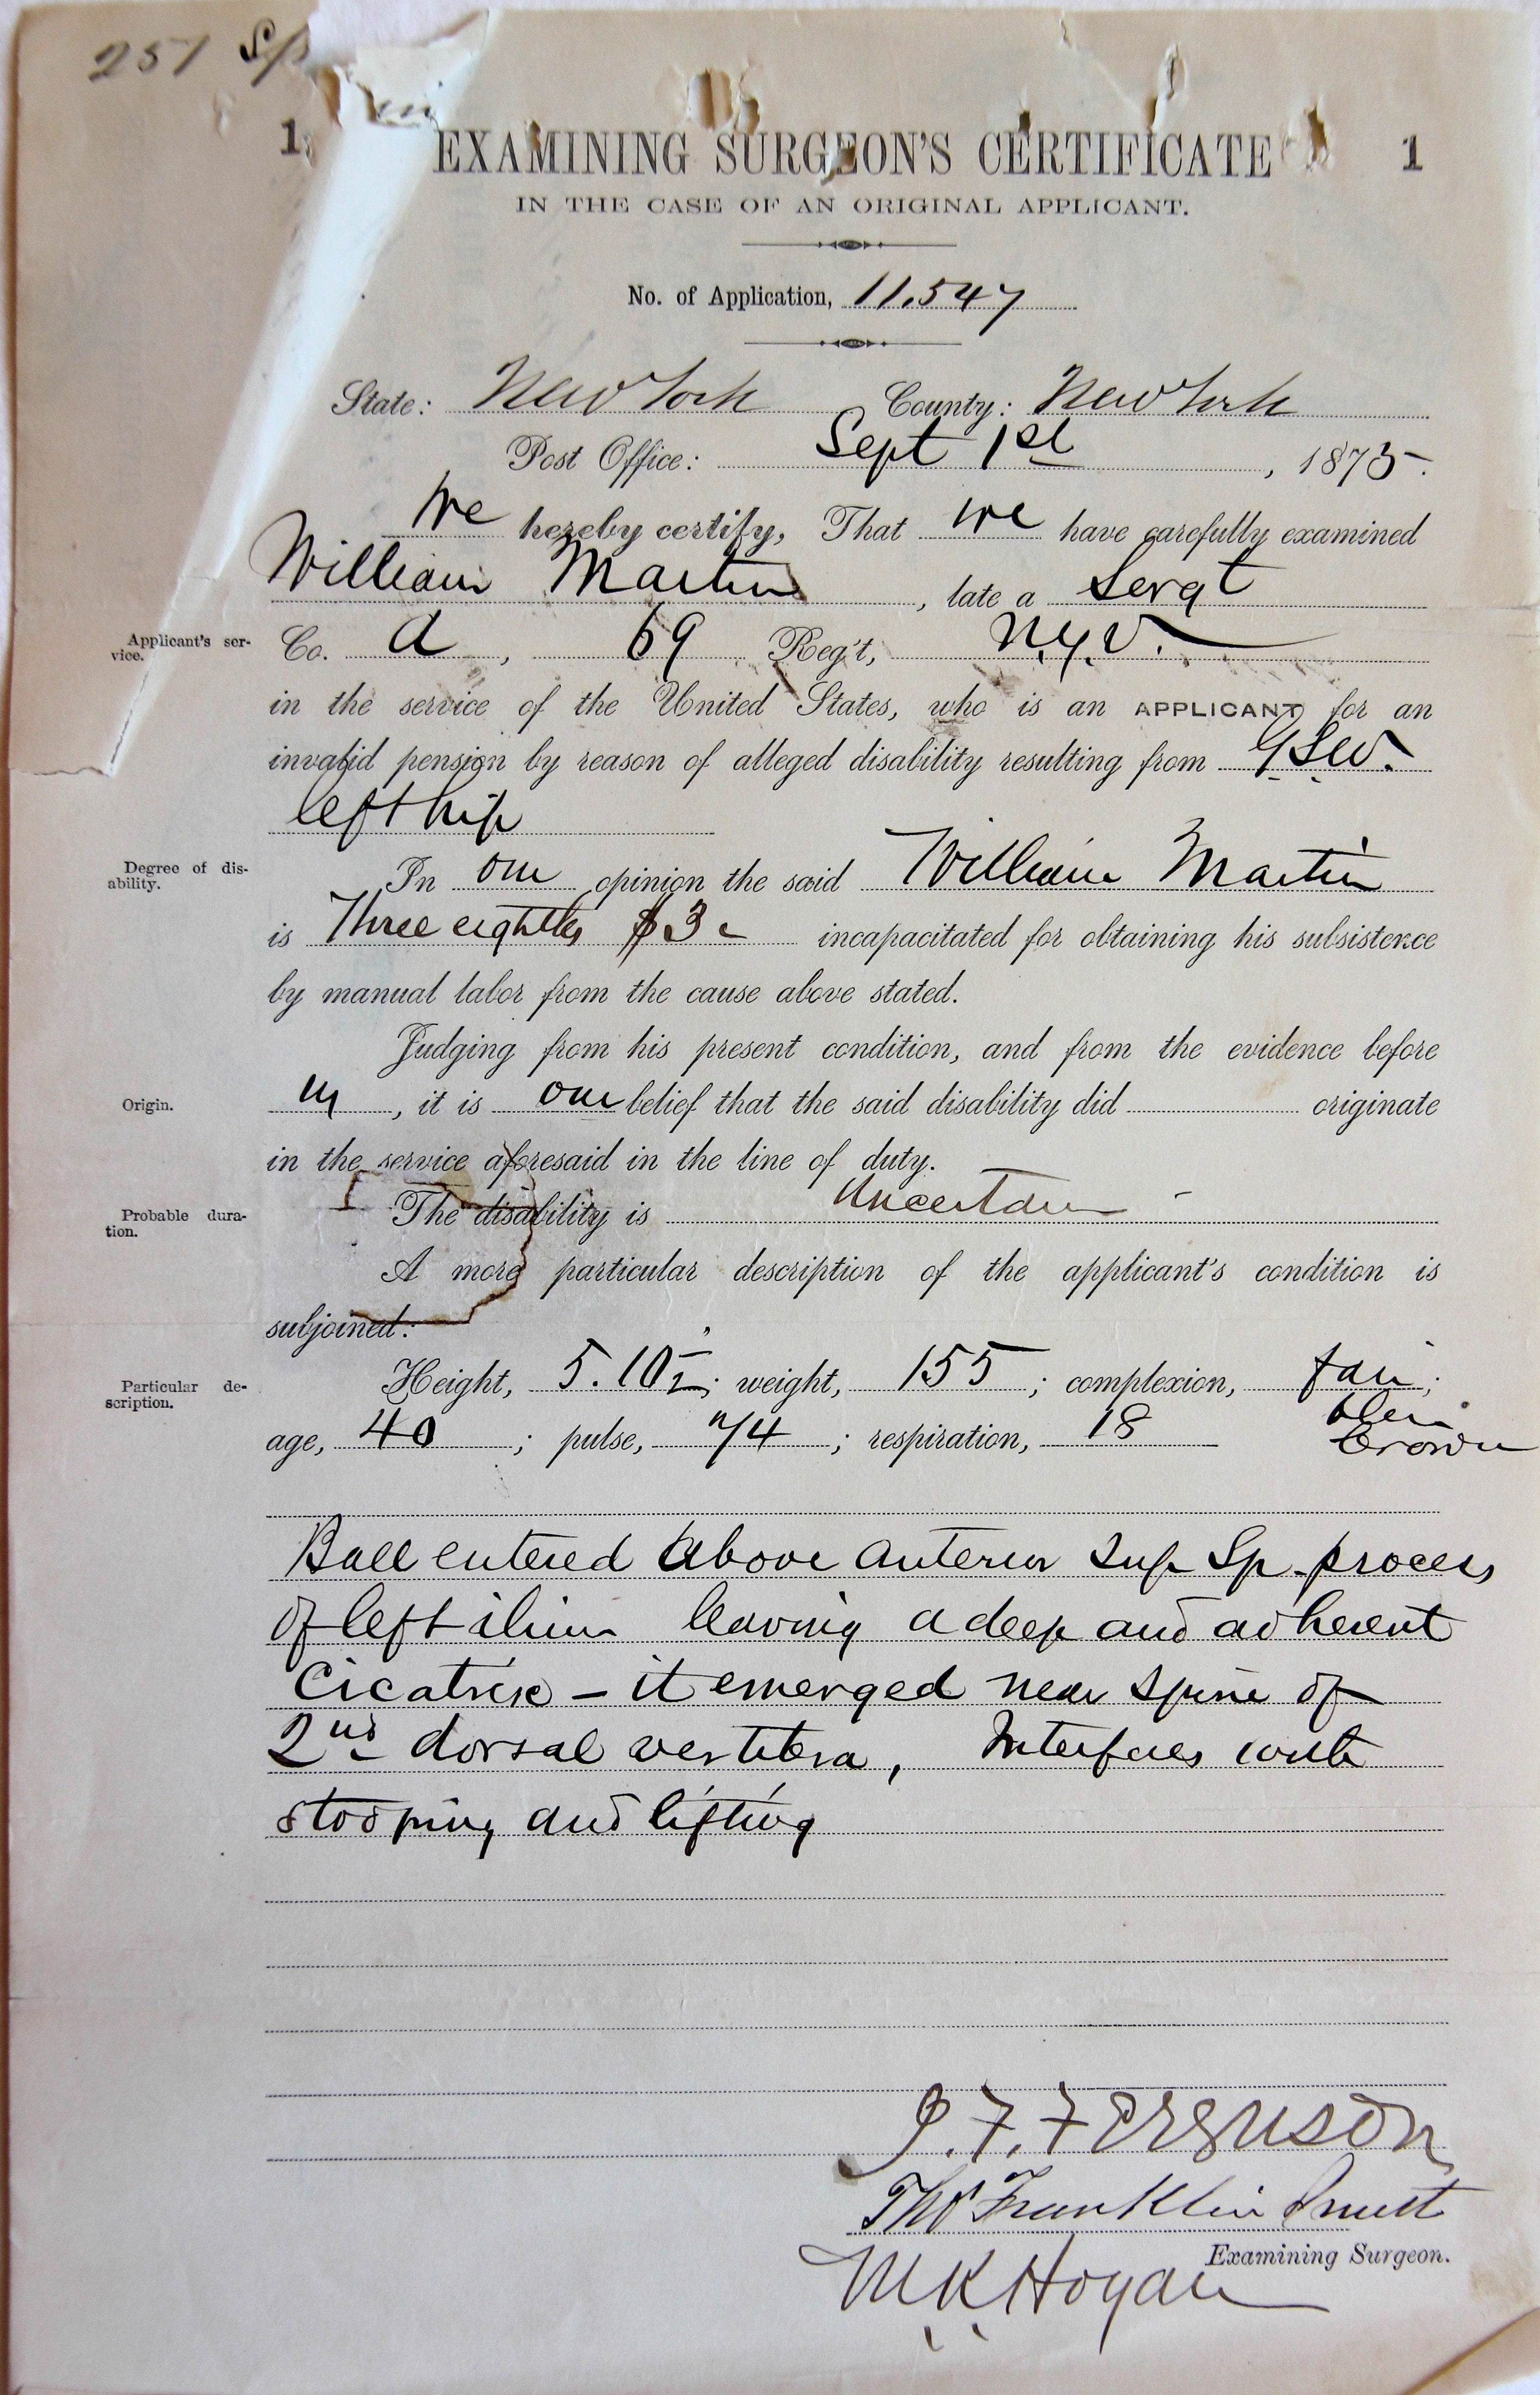 251
1 EXAMINING SURGEON'S CERTIFICATE 1
IN THE CASE OF AN ORIGINAL APPLICANT.
No. of Application, 11.547
State: New York County: New York
Post Office: Sept 1st, 1875.
We hereby certify, That we have carefully examined
William Martin, late a Sergt
Applicant's ser-
vice.
Co. A, 69 Reg't, N.Y.V.
in the service of the United States, who is an APPLICANT for an
invalid pension by reason of alleged disability resulting from G.S.W.
left hip
Degree of dis-
ability.
In our opinion the said William Martin
is Three eighths $3 incapacitated for obtaining his subsistence
by manual labor from the cause above stated.
Judging from his present condition, and from the evidence before
Origin.
us, it is our belief that the said disability did originate
in the service aforesaid in the line of duty.
Probable dura-
tion.
The disability is Uncertain
A more particular description of the applicant's condition is
subjoined:
Particular de-
scription.
Height, 5.10½; weight, 155; complexion, fair;
age, 40; pulse, 74; respiration, 18
brown
Ball entered above anterior Sup Sp. process
of left ilium leaving a deep and adherent
Cicatrix – it emerged near spine of
2nd dorsal vertebra, Interferes with
stooping and lifting
J. F. Ferguson
Franklin Smith
Examining Surgeon.
M K Hogan